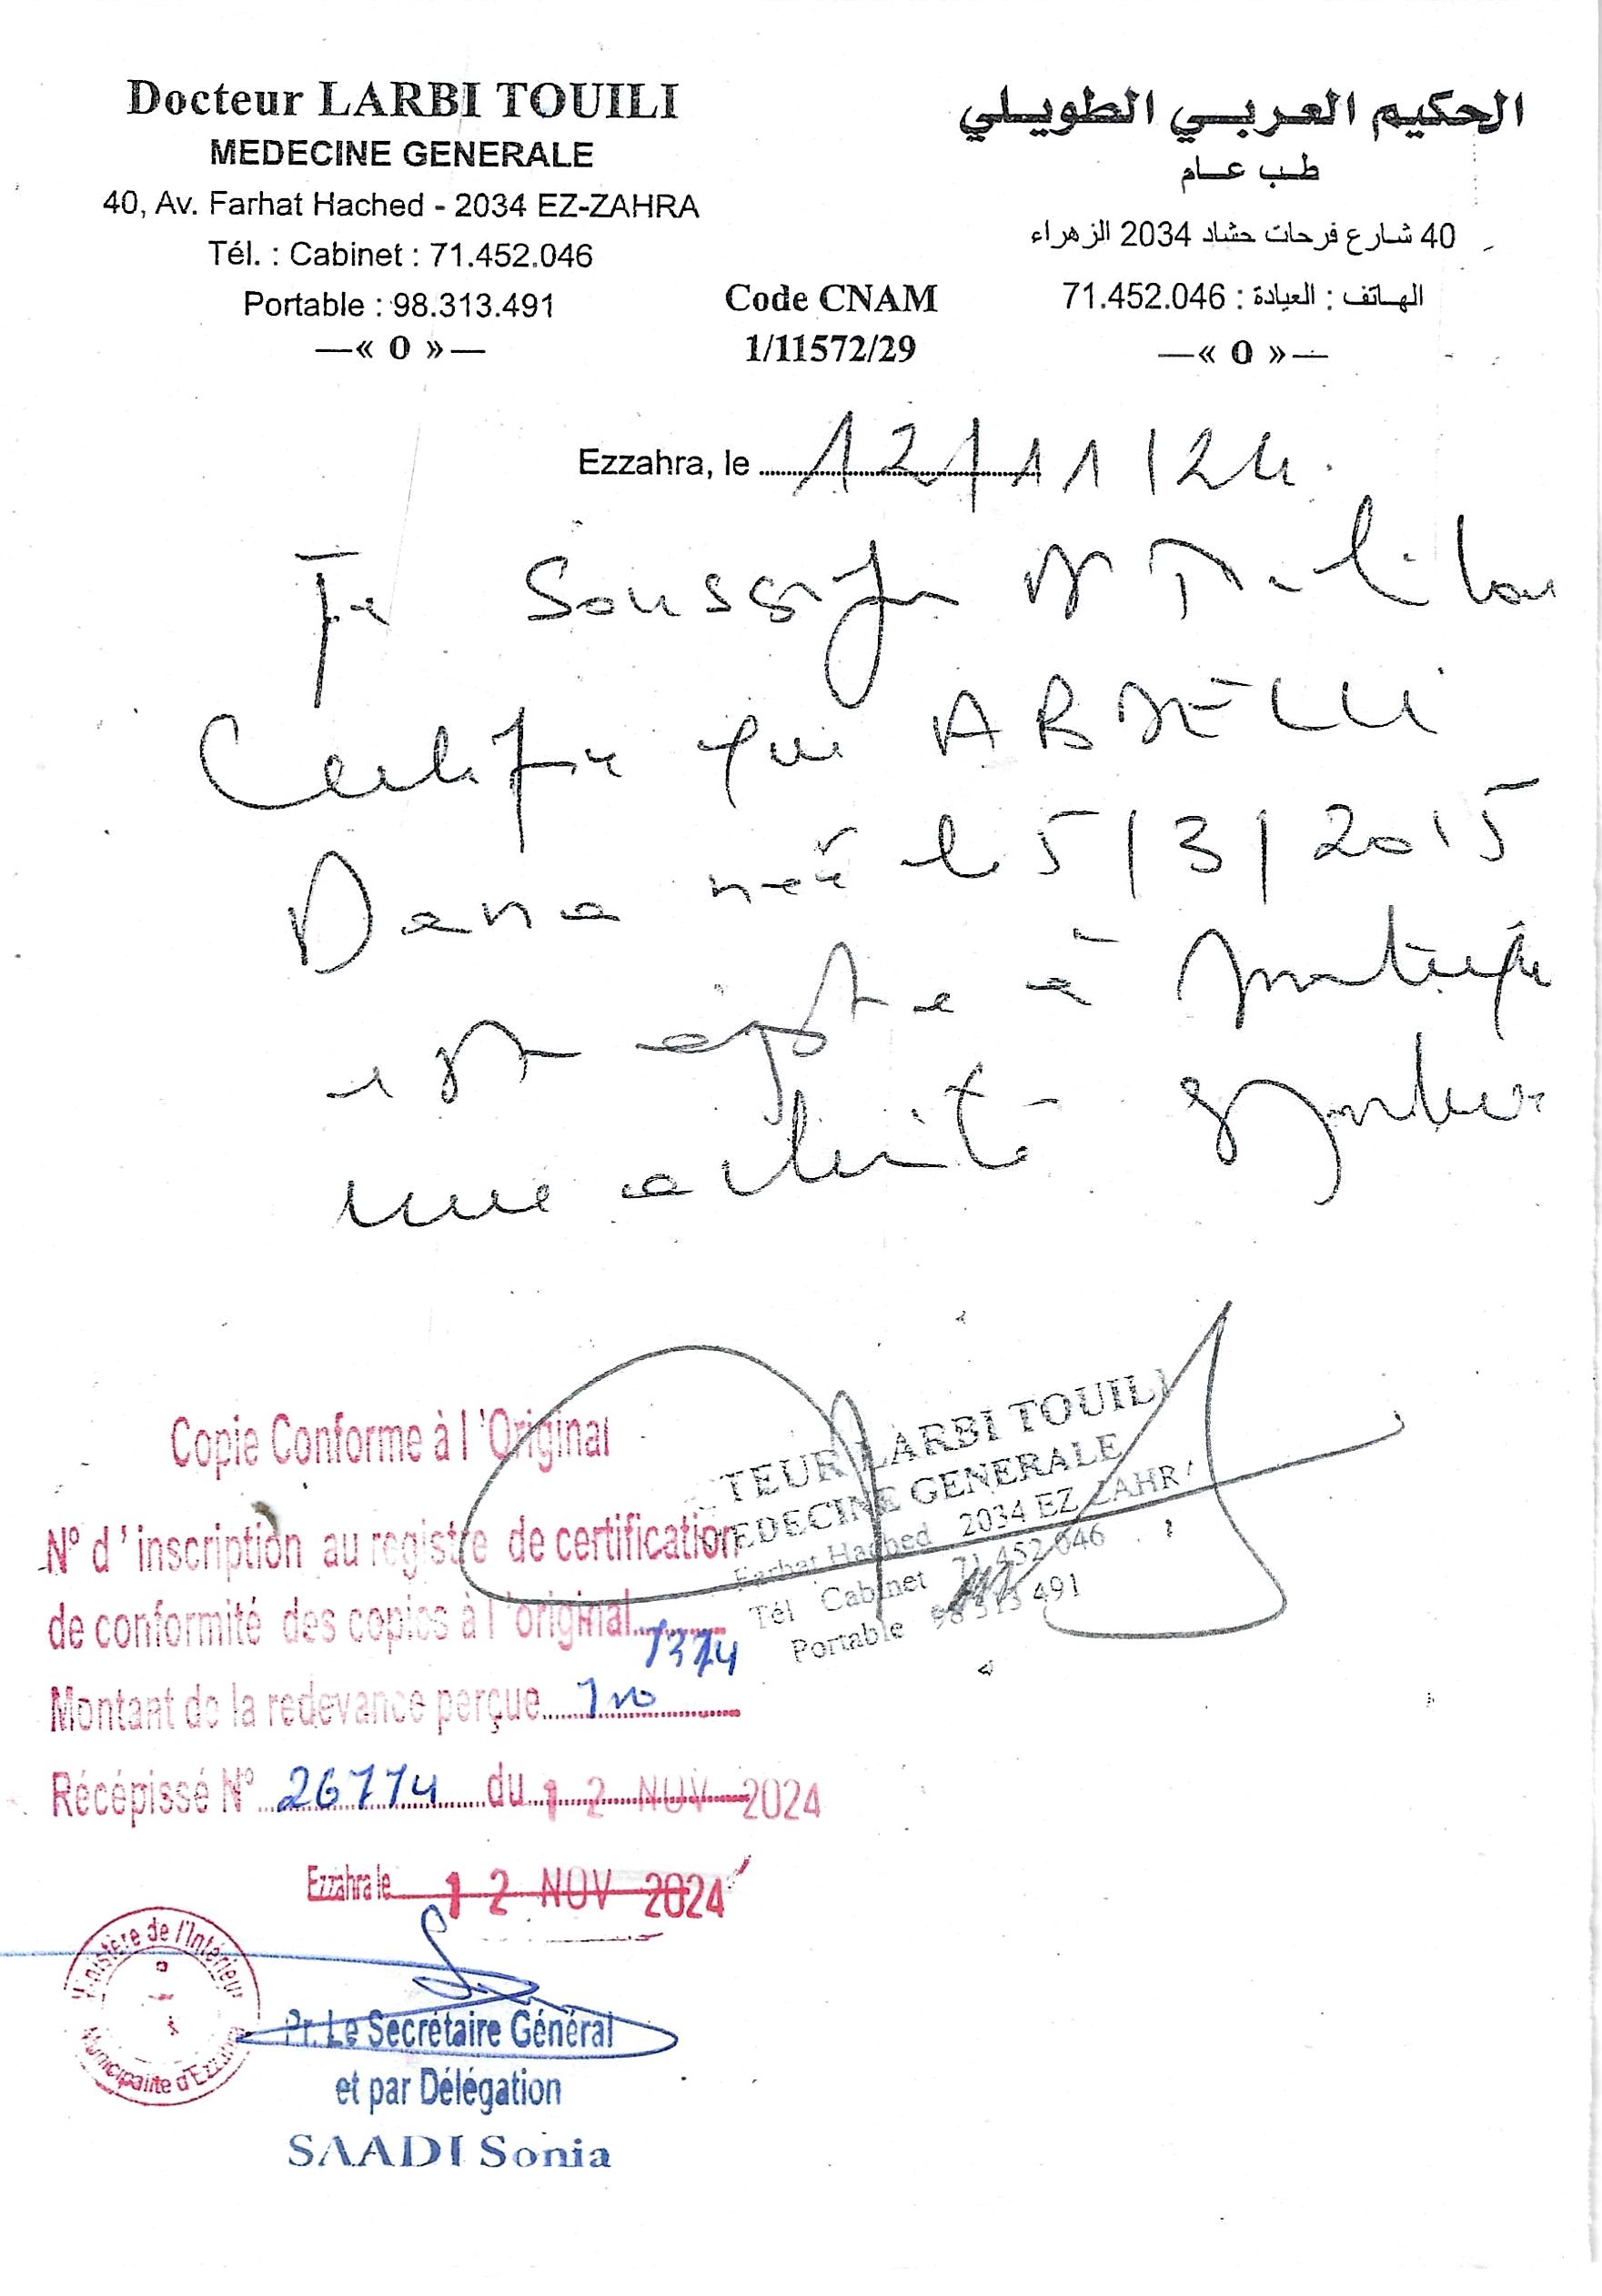 Docteur LARBI TOUILI
MEDECINE GENERALE
40, Av. Farhat Hached - 2034 EZ-ZAHRA
Tél. : Cabinet : 71.452.046
Portable : 98.313.491
—« O »—
الحكيم العربي الطويلي
طب عام
40 شارع فرحات حشاد 2034 الزهراء
الهاتف : العيادة : 71.452.046
—« O »—
Code CNAM
1/11572/29
Ezzahra, le 12/11/24.
Je soussigné Dr
Certifie que ABDELLI
Dana née le 5/3/2015
est apte à pratiquer
une activité sportive
TEUR LARBI TOUILI
EDECINE GENERALE
Farhat Hached 2034 EZ ZAHR
Tél Cabinet 71 452 046
Portable 98 313 491
Copie Conforme à l'Original
N° d'inscription au registre de certification
de conformité des copies à l'original
Montant de la redevance perçue
Récépissé N° 26774 du 12 NOV 2024
Ezzahra le 12 NOV 2024
Ministère de l'Intérieur
Municipalité d'Ezzahra
Pr. Le Secrétaire Général
et par Délégation
SAADI Sonia